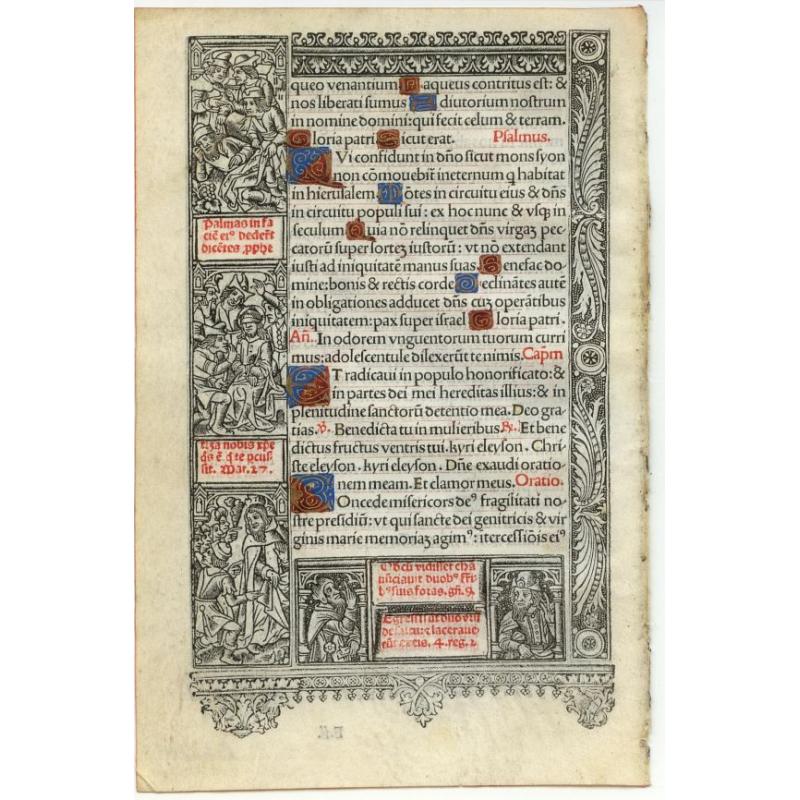 queo venantium. Laqueus contritus est: &
nos liberati sumus Adiutorium nostrum
in nomine domini: qui fecit celum & terram.
Gloria patri Sicut erat. Psalmus.
QVi confidunt in dño sicut mons syon
non cōmouebit̃ ineternum q̃ habitat
in hierusalem. Mōtes in circuitu eius & dñs
in circuitu populi sui: ex hoc nunc & vsq; in
seculum Quia nō relinquet dñs virgaȝ pec
catorū super sorteȝ iustorū: vt nō extendant
iusti ad iniquitatē manus suas. Benefac do
mine: bonis & rectis corde Declinātes autē
in obligationes adducet dñs cuȝ operātibus
iniquitatem: pax super israel Gloria patri.
Añ. In odorem vnguentorum tuorum curri
mus: adolescentule dilexerūt te nimis. Capm̄
ET radicaui in populo honorificato: &
in partes dei mei hereditas illius: & in
plenitudine sanctorū detentio mea. Deo gra
tias. ℣. Benedicta tu in mulieribus. ℟. Et bene
dictus fructus ventris tui. kyri eleyson. Chri
ste eleyson. kyri eleyson. Dñe exaudi oratio
nem meam. Et clamor meus. Oratio.
COncede misericors deꝰ fragilitati no
stre presidiū: vt qui sancte dei genitricis & vir
ginis marie memoriaȝ agimꝰ: itercessiōis eiꝰ
Palmas in fa
ciē eiꝰ dederūt
dicētes ꝓphe
tiza nobis xp̄e
q̄s ē q̄ te pcus
sit. Mar. 27.
Qd̄ cū vidisset chā
nūciauit duobꝰ fr̄i
bꝰ suis foras. gñ. 9.
Egressi sūt duo vrsi
de saltu: & lacerauer̄
eis. 4. reg. 2